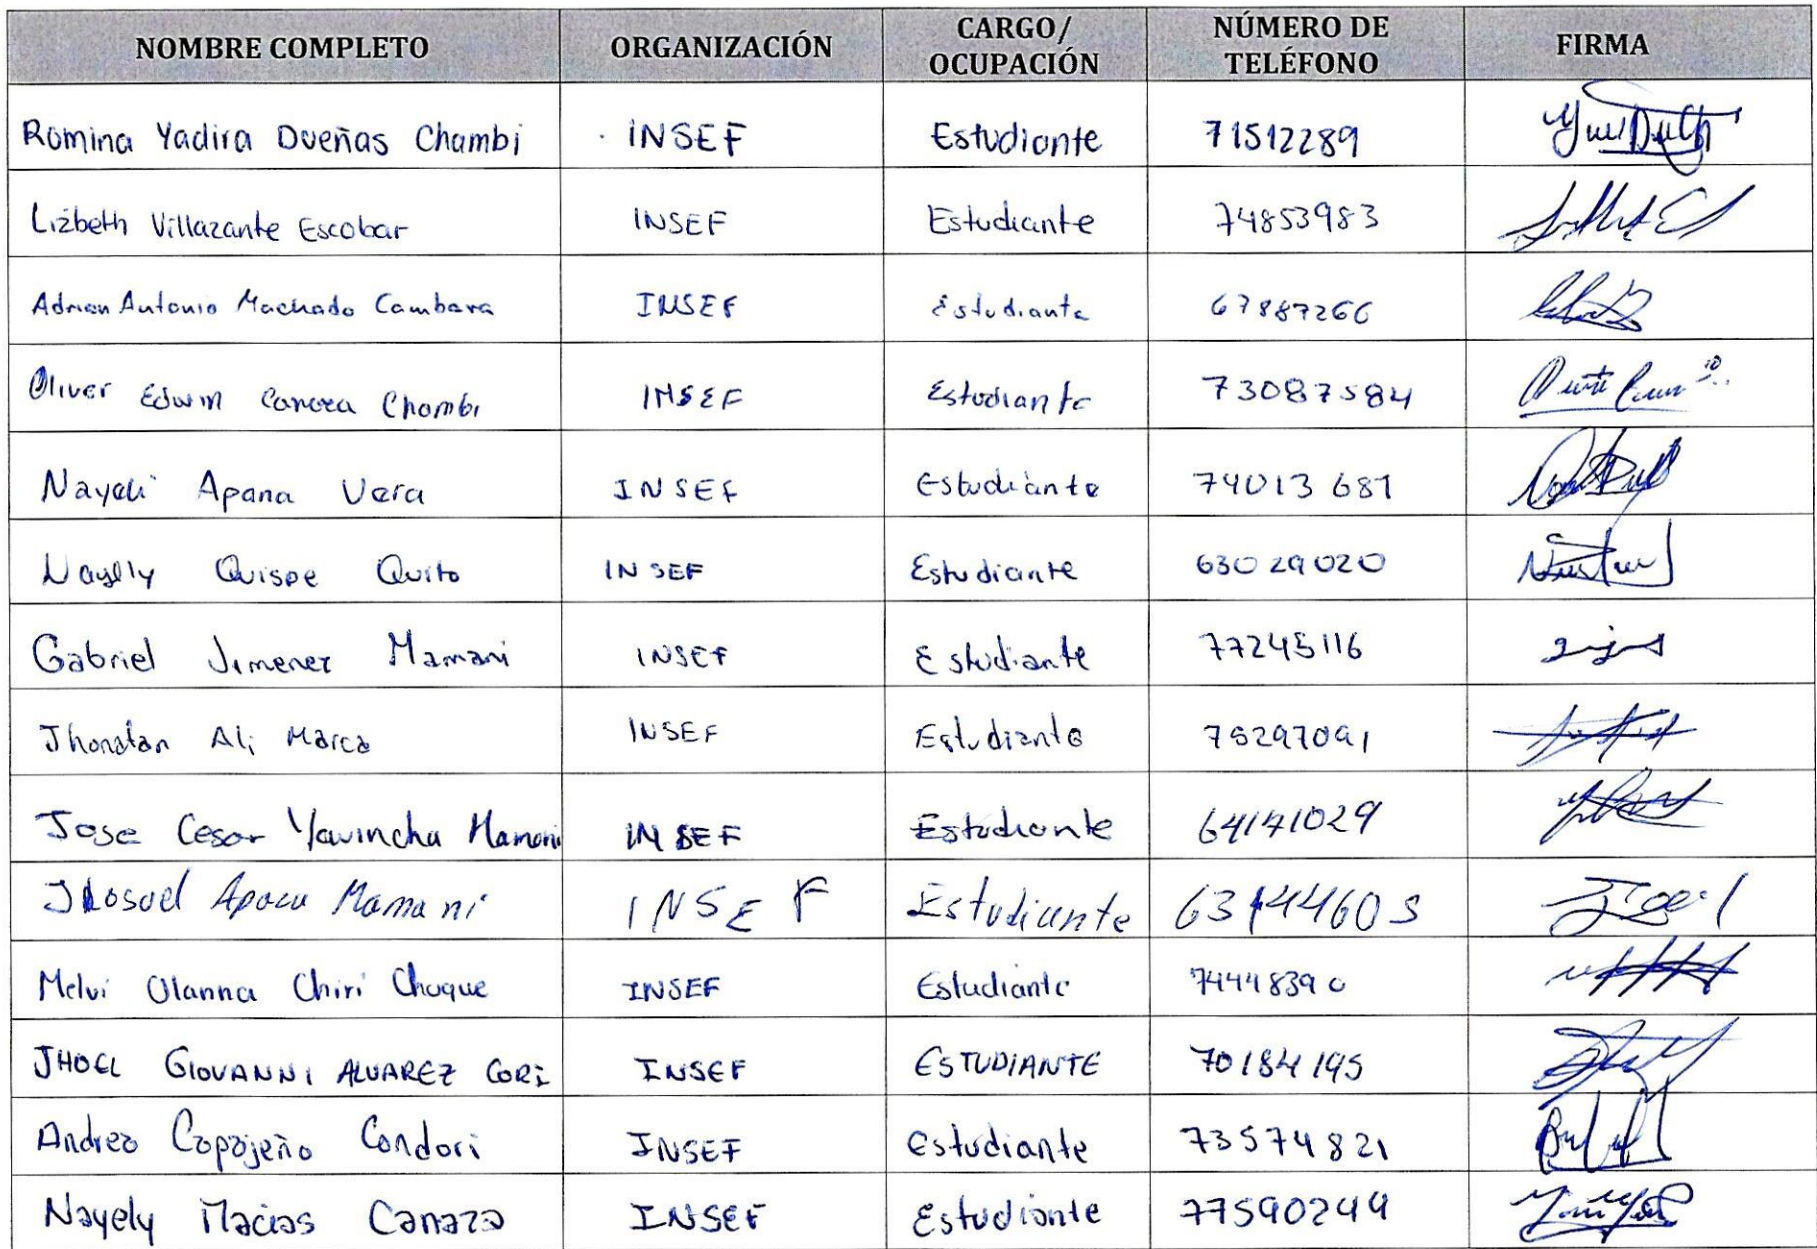 NOMBRE COMPLETO ORGANIZACIÓN CARGO/ OCUPACIÓN NÚMERO DE TELÉFONO FIRMA
Romina Yadira Dueñas Chambi INSEF Estudiante 71512289
Lizbeth Villazante Escobar INSEF Estudiante 74853983
Adrian Antonio Machado Cambara INSEF Estudiante 67887266
Oliver Edwin Canaza Chambi INSEF Estudiante 73087584
Nayeli Apana Vera INSEF Estudiante 74013681
Nayelly Quispe Quito INSEF Estudiante 63029020
Gabriel Jimenez Mamani INSEF Estudiante 77245116
Jhonatan Ali Marca INSEF Estudiante 75297091
Jose Cesar Yavincha Mamani INSEF Estudiante 64141029
Jhosuel Mamani INSEF Estudiante 63144605
Melvi Olanna Chiri Choque INSEF Estudiante 74448390
JHOEL GIOVANNI ALVAREZ CORI INSEF ESTUDIANTE 70184195
Andrea Copajeño Condori INSEF Estudiante 73574821
Nayely Macias Canaza INSEF Estudiante 77590249